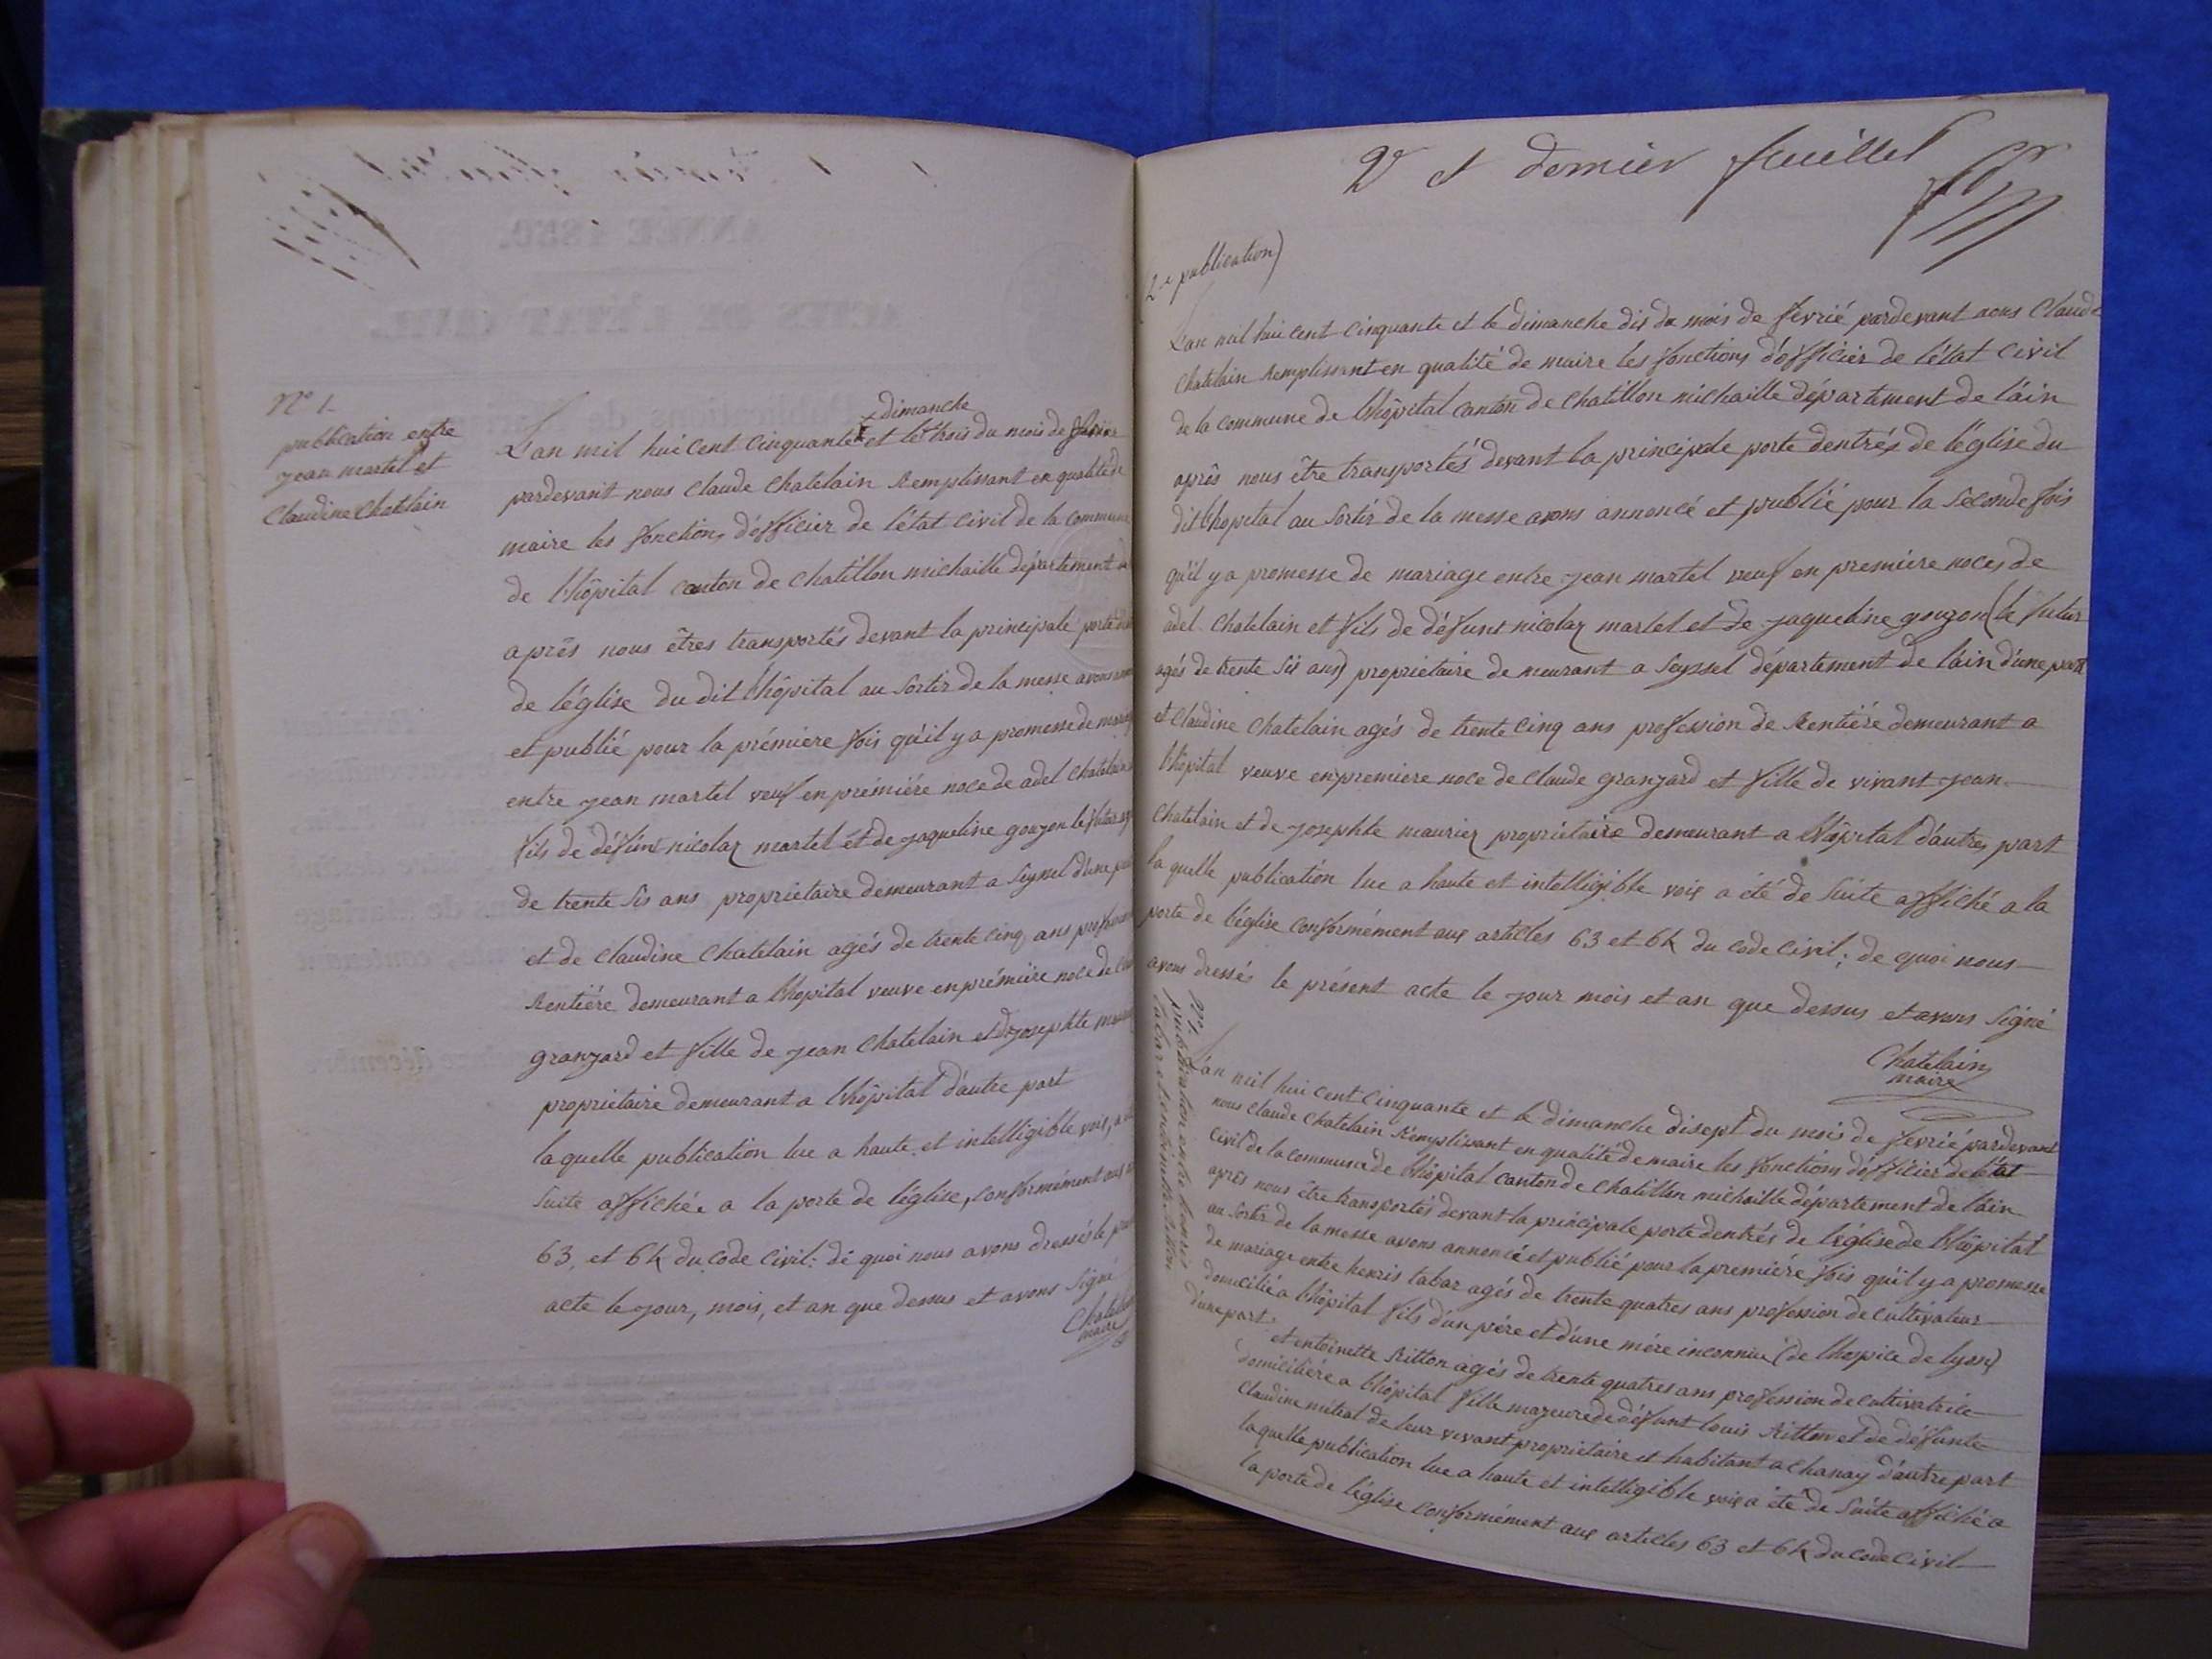 N° 1
publication entre
jean martel et
Claudine Chatelain
dimanche
L'an mil hui cent cinquante et le trois du mois de
pardevant nous Claude Chatelain Remplissant en qualité de
maire les fonctions d'officier de l'état civil de la commune
de l'hôpital canton de Chatillon michaille département
après nous êtres transportés devant la principale porte
de l'église du dit l'hôpital au sortir de la messe avons
et publié pour la prémiere fois qu'il y a promesse de
entre jean martel veuf en prémiére noce de adel Chatelain
fils de défunt nicolaz martel et de jaqueline gouzon le futur
de trente sis ans propriétaire demeurant a Seyssel d'une
et de Claudine Chatelain agés de trente cinq ans
Rentiére demeurant a l'hopital veuve en prémiere noce de
granjard et fille de jean Chatelain et de josephte
propriétaire demeurant a l'hôpital d'autre part
laquelle publication lue a haute et intelligible voix, a
suite affichée a la porte de l'église, conformément aux
63, et 64 du code civil: de quoi nous avons dressés le
acte le jour, mois, et an que dessus et avons signé
Chatelain
maire
2e et dernier feuillet
2e publication)
L'an mil hui cent cinquante et le dimanche dix du mois de fevrié pardevant nous Claude
Chatelain Remplissant en qualité de maire les fonctions d'officier de l'état civil
de la commune de l'hôpital canton de Chatillon michaille département de l'ain
après nous être transportés devant la principale porte dentrés de l'église du
dit l'hopital au sortir de la messe avons annoncé et publié pour la seconde fois
qu'il y a promesse de mariage entre jean martel veuf en premiere noces de
adel Chatelain et fils de défunt nicolaz martel et de jaqueline gouzon (le futur
agés de trente sis ans) propriétaire demeurant a Seyssel département de l'ain d'une part
et Claudine Chatelain agés de trente cinq ans profession de Rentiére demeurant a
l'hôpital veuve en premiere noce de Claude granjard et fille de vivant jean
Chatelain et de josephte maurier propriétaire demeurant a l'hôpital d'autres part
la quelle publication lue a haute et intelligible voix a été de suite affiché a la
porte de l'église conformément aux articles 63 et 64 du code civil; de quoi nous
avons dressés le présent acte le jour mois et an que dessus et avons signé
Chatelain
maire
N° 2
publication entre henris
tabar et entoinette Ritton
L'an mil hui cent cinquante et le dimanche disept du mois de fevrié pardevant
nous Claude Chatelain Remplissant en qualité de maire les fonctions d'officier de l'état
civil de la commune de l'hôpital canton de Chatillon michaille département de l'ain
après nous être transportés devant la principale porte dentrés de l'église de l'hôpital
au sortir de la messe avons annoncé et publié pour la premiére fois qu'il y a promesse
de mariage entre henris tabar agés de trente quatres ans profession de cultivateur
domicilié a l'hôpital fils d'un pére et d'une mére inconnue (de l'hospice de lyon)
d'une part
et entoinette Ritton agés de trente quatres ans profession de cultivatrice
domiciliére a l'hôpital fille majeure de défunt louis Ritton et de défunte
Claudine mitral de leur vivant propriétaire et habitant a Chanay d'autre part
laquelle publication lue a haute et intelligible voix a été de suite affiché a
la porte de l'église conformément aux articles 63 et 64 du code civil